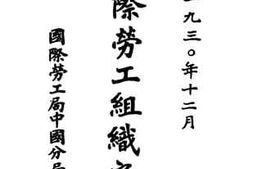 九三〇年十二月
際勞工組織
國際勞工局中國分局